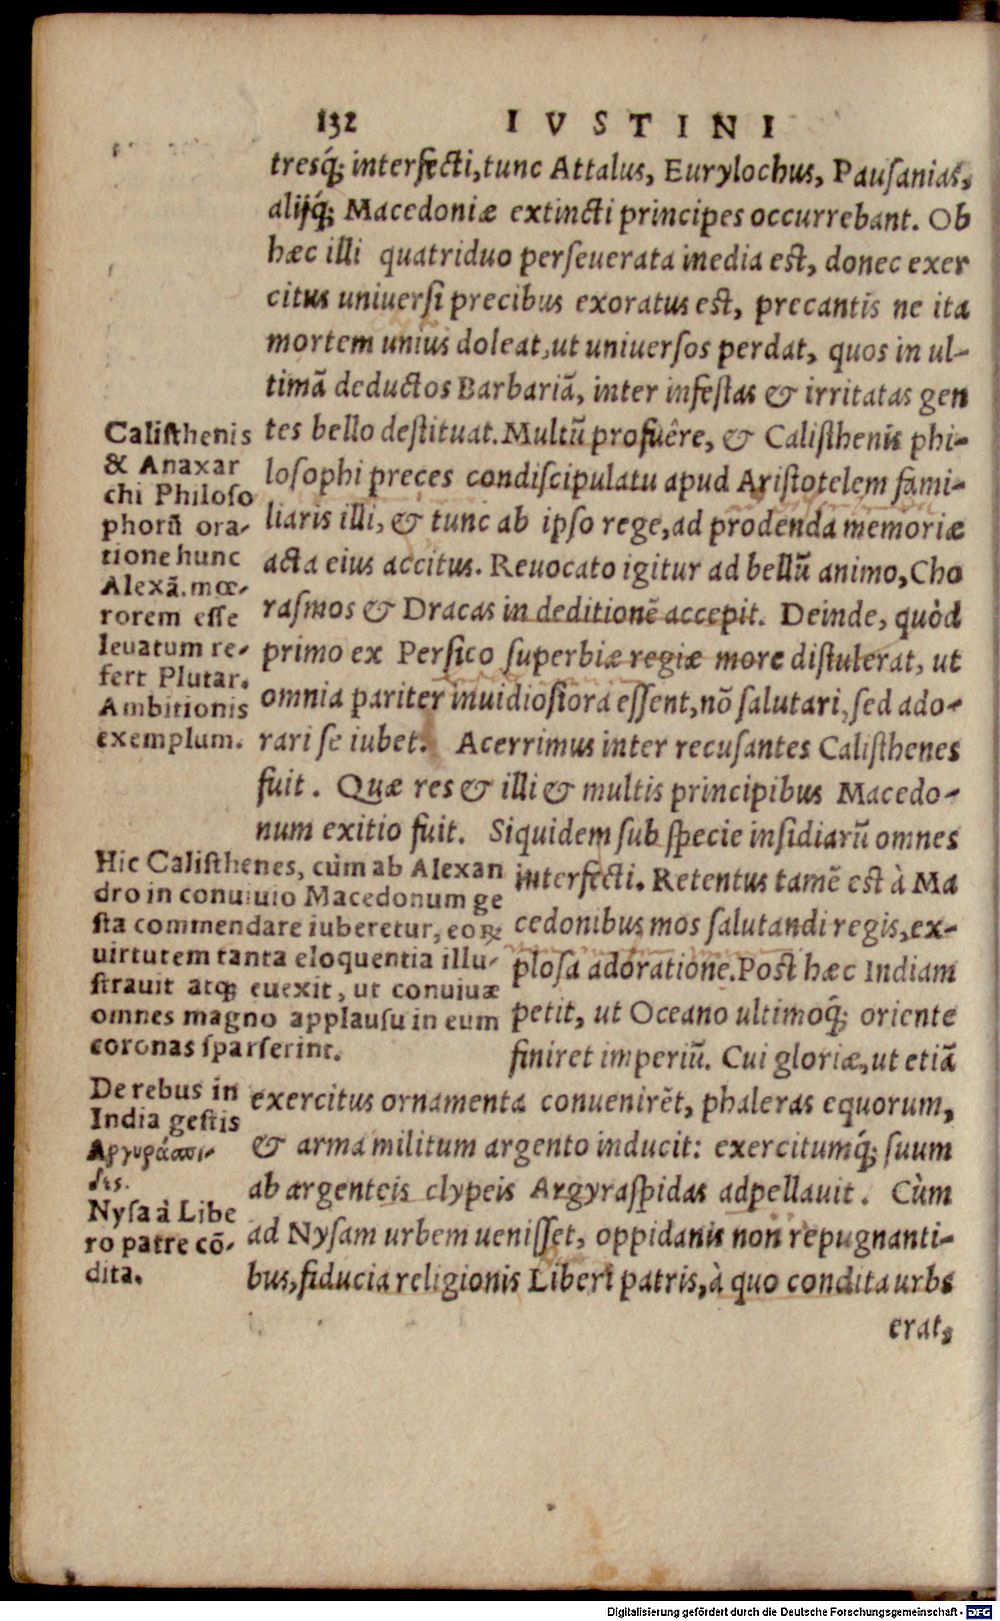 132 IVSTINI
tresq́; interfecti, tunc Attalus, Eurylochus, Pausanias,
alijq́; Macedoniæ extincti principes occurrebant. Ob
hæc illi quatriduo perseuerata inedia est, donec exer
citus uniuersi precibus exoratus est, precantis ne ita
mortem unius doleat, ut uniuersos perdat, quos in ul-
timã deductos Barbariã, inter infestas & irritatas gen
tes bello destituat. Multũ profuêre, & Calisthenis phi-
losophi preces condiscipulatu apud Aristotelem fami-
liaris illi, & tunc ab ipso rege, ad prodenda memoriæ
acta eius accitus. Reuocato igitur ad bellũ animo, Cho
rasmos & Dracas in deditionẽ accepit. Deinde, quòd
primo ex Persico superbiæ regiæ more distulerat, ut
omnia pariter inuidiosiora essent, nõ salutari, sed ado-
rari se iubet. Acerrimus inter recusantes Calisthenes
fuit. Quæ res & illi & multis principibus Macedo-
num exitio fuit. Siquidem sub specie insidiarũ omnes
interfecti. Retentus tamẽ est à Ma
cedonibus mos salutandi regis, ex-
plosa adoratione. Post hæc Indiam
petit, ut Oceano ultimoq́; oriente
finiret imperiũ. Cui gloriæ, ut etiã
exercitus ornamenta conuenirẽt, phaleras equorum,
& arma militum argento inducit: exercitumq́; suum
ab argenteis clypeis Argyraspidas adpellauit. Cùm
ad Nysam urbem uenisset, oppidanis non repugnanti-
bus, fiducia religionis Liberi patris, à quo condita urbs
erat,
Calisthenis
& Anaxar
chi Philoso
phorũ ora-
tione hunc
Alexã. mœ-
rorem esse
leuatum re-
fert Plutar.
Ambitionis
exemplum.
Hic Calisthenes, cùm ab Alexan
dro in conuiuio Macedonum ge
sta commendare iuberetur, eoꝝ
uirtutem tanta eloquentia illu-
strauit atq; euexit, ut conuiuæ
omnes magno applausu in eum
coronas sparserint.
De rebus in
India gestis
Αργυράσπι-
δες.
Nysa à Libe
ro patre cõ-
dita.
Digitalisierung gefördert durch die Deutsche Forschungsgemeinschaft - DFG